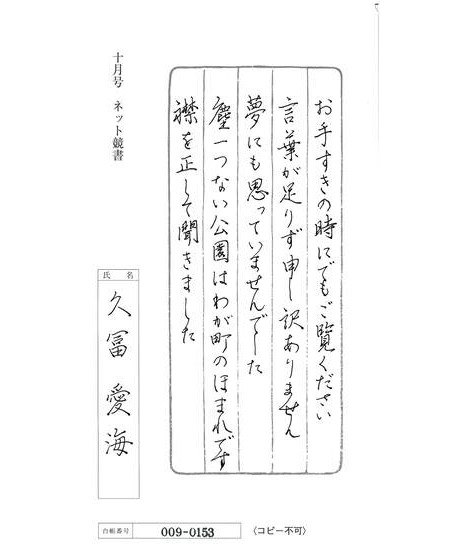 お手すきの時にでもご覧ください
言葉が足りず申し訳ありません
夢にも思っていませんでした
塵一つない公園はわが町のほまれです
襟を正して聞きました
十月号 ネット競書
氏名
久冨愛海
台帳番号 009-0153 (コピー不可)